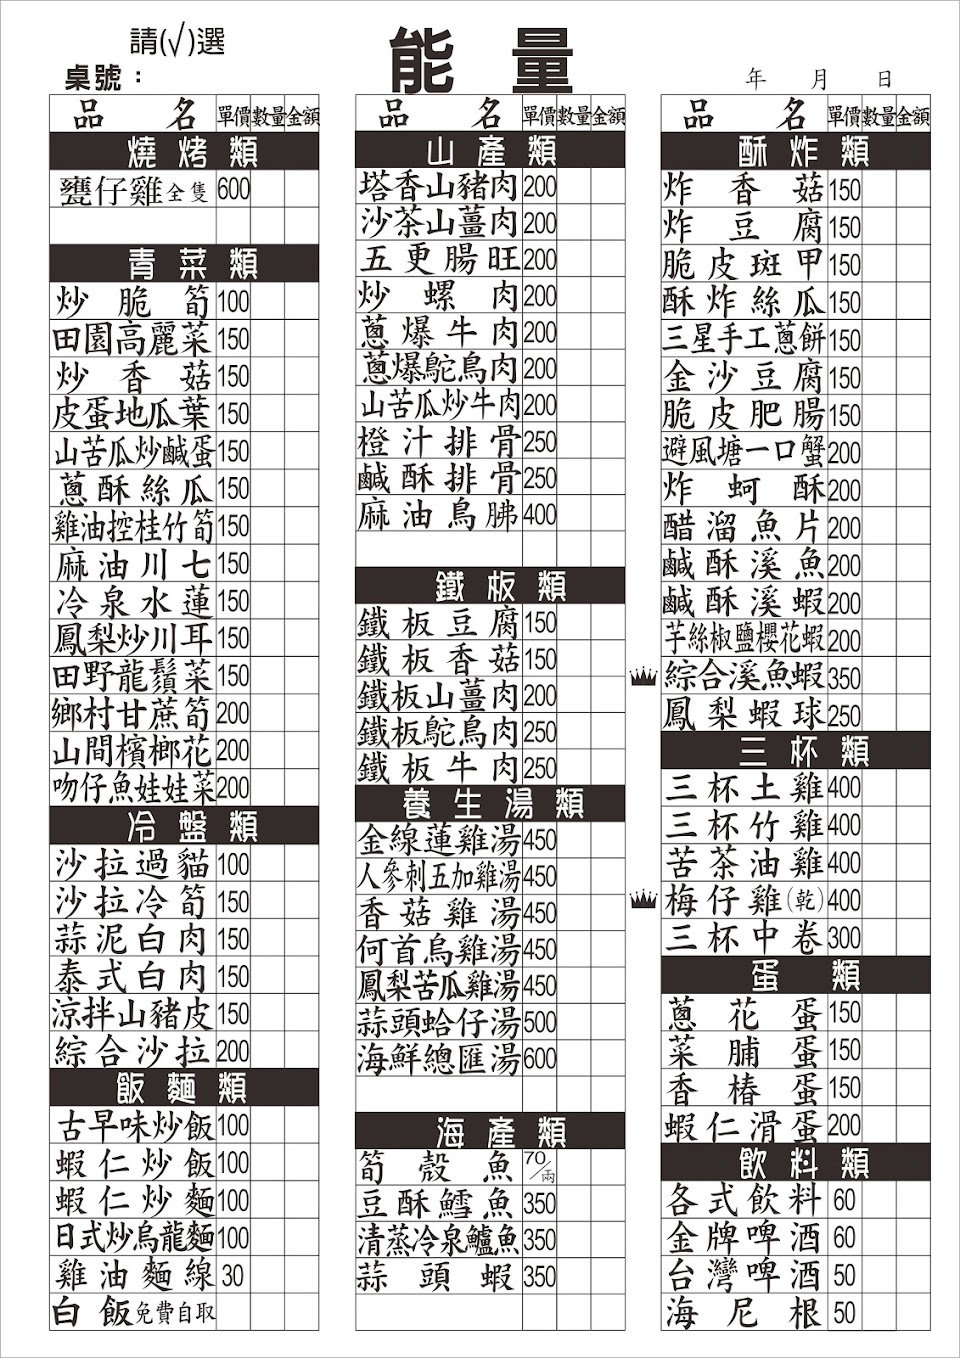 請(√)選
能量
桌號：
年 月 日
品名 單價 數量 金額
燒烤類
甕仔雞全隻 600
青菜類
炒脆筍 100
田園高麗菜 150
炒香菇 150
皮蛋地瓜葉 150
山苦瓜炒鹹蛋 150
蔥酥絲瓜 150
雞油控桂竹筍 150
麻油川七 150
冷泉水蓮 150
鳳梨炒川耳 150
田野龍鬚菜 150
鄉村甘蔗筍 200
山間檳榔花 200
吻仔魚娃娃菜 200
冷盤類
沙拉過貓 100
沙拉冷筍 150
蒜泥白肉 150
泰式白肉 150
涼拌山豬皮 150
綜合沙拉 200
飯麵類
古早味炒飯 100
蝦仁炒飯 100
蝦仁炒麵 100
日式炒烏龍麵 100
雞油麵線 30
白飯免費自取
品名 單價 數量 金額
山產類
塔香山豬肉 200
沙茶山薑肉 200
五更腸旺 200
炒螺肉 200
蔥爆牛肉 200
蔥爆鴕鳥肉 200
山苦瓜炒牛肉 200
橙汁排骨 250
鹹酥排骨 250
麻油鳥胇 400
鐵板類
鐵板豆腐 150
鐵板香菇 150
鐵板山薑肉 200
鐵板鴕鳥肉 250
鐵板牛肉 250
養生湯類
金線蓮雞湯 450
人參刺五加雞湯 450
香菇雞湯 450
何首烏雞湯 450
鳳梨苦瓜雞湯 450
蒜頭蛤仔湯 500
海鮮總匯湯 600
海產類
筍殼魚 70/兩
豆酥鱈魚 350
清蒸冷泉鱸魚 350
蒜頭蝦 350
品名 單價 數量 金額
酥炸類
炸香菇 150
炸豆腐 150
脆皮斑甲 150
酥炸絲瓜 150
三星手工蔥餅 150
金沙豆腐 150
脆皮肥腸 150
避風塘一口蟹 200
炸蚵酥 200
醋溜魚片 200
鹹酥溪魚 200
鹹酥溪蝦 200
芋絲椒鹽櫻花蝦 200
綜合溪魚蝦 350
鳳梨蝦球 250
三杯類
三杯土雞 400
三杯竹雞 400
苦茶油雞 400
梅仔雞(乾) 400
三杯中卷 300
蛋類
蔥花蛋 150
菜脯蛋 150
香椿蛋 150
蝦仁滑蛋 200
飲料類
各式飲料 60
金牌啤酒 60
台灣啤酒 50
海尼根 50